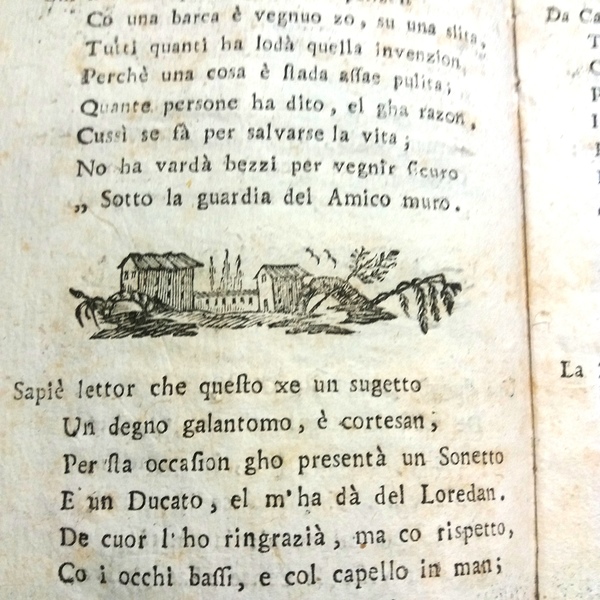 Co una barca è vegnuo zo, su una slita,
Tutti quanti ha lodà quella invenzion,
Perchè una cosa è ſtada aſſae pulita;
Quante persone ha dito, el gha razon,
Cussì se fà per salvarse la vita;
No ha vardà bezzi per vegnir ſicuro
„ Sotto la guardia del Amico muro.
Sapiè lettor che queſto xe un sugetto
Un degno galantomo, è cortesan;
Per ſta occaſion gho presentà un Sonetto
E un Ducato, el m'ha dà del Loredan.
De cuor l'ho ringrazià, ma co rispetto,
Co i occhi baſſi, e col capello in man;
Da Ca
La